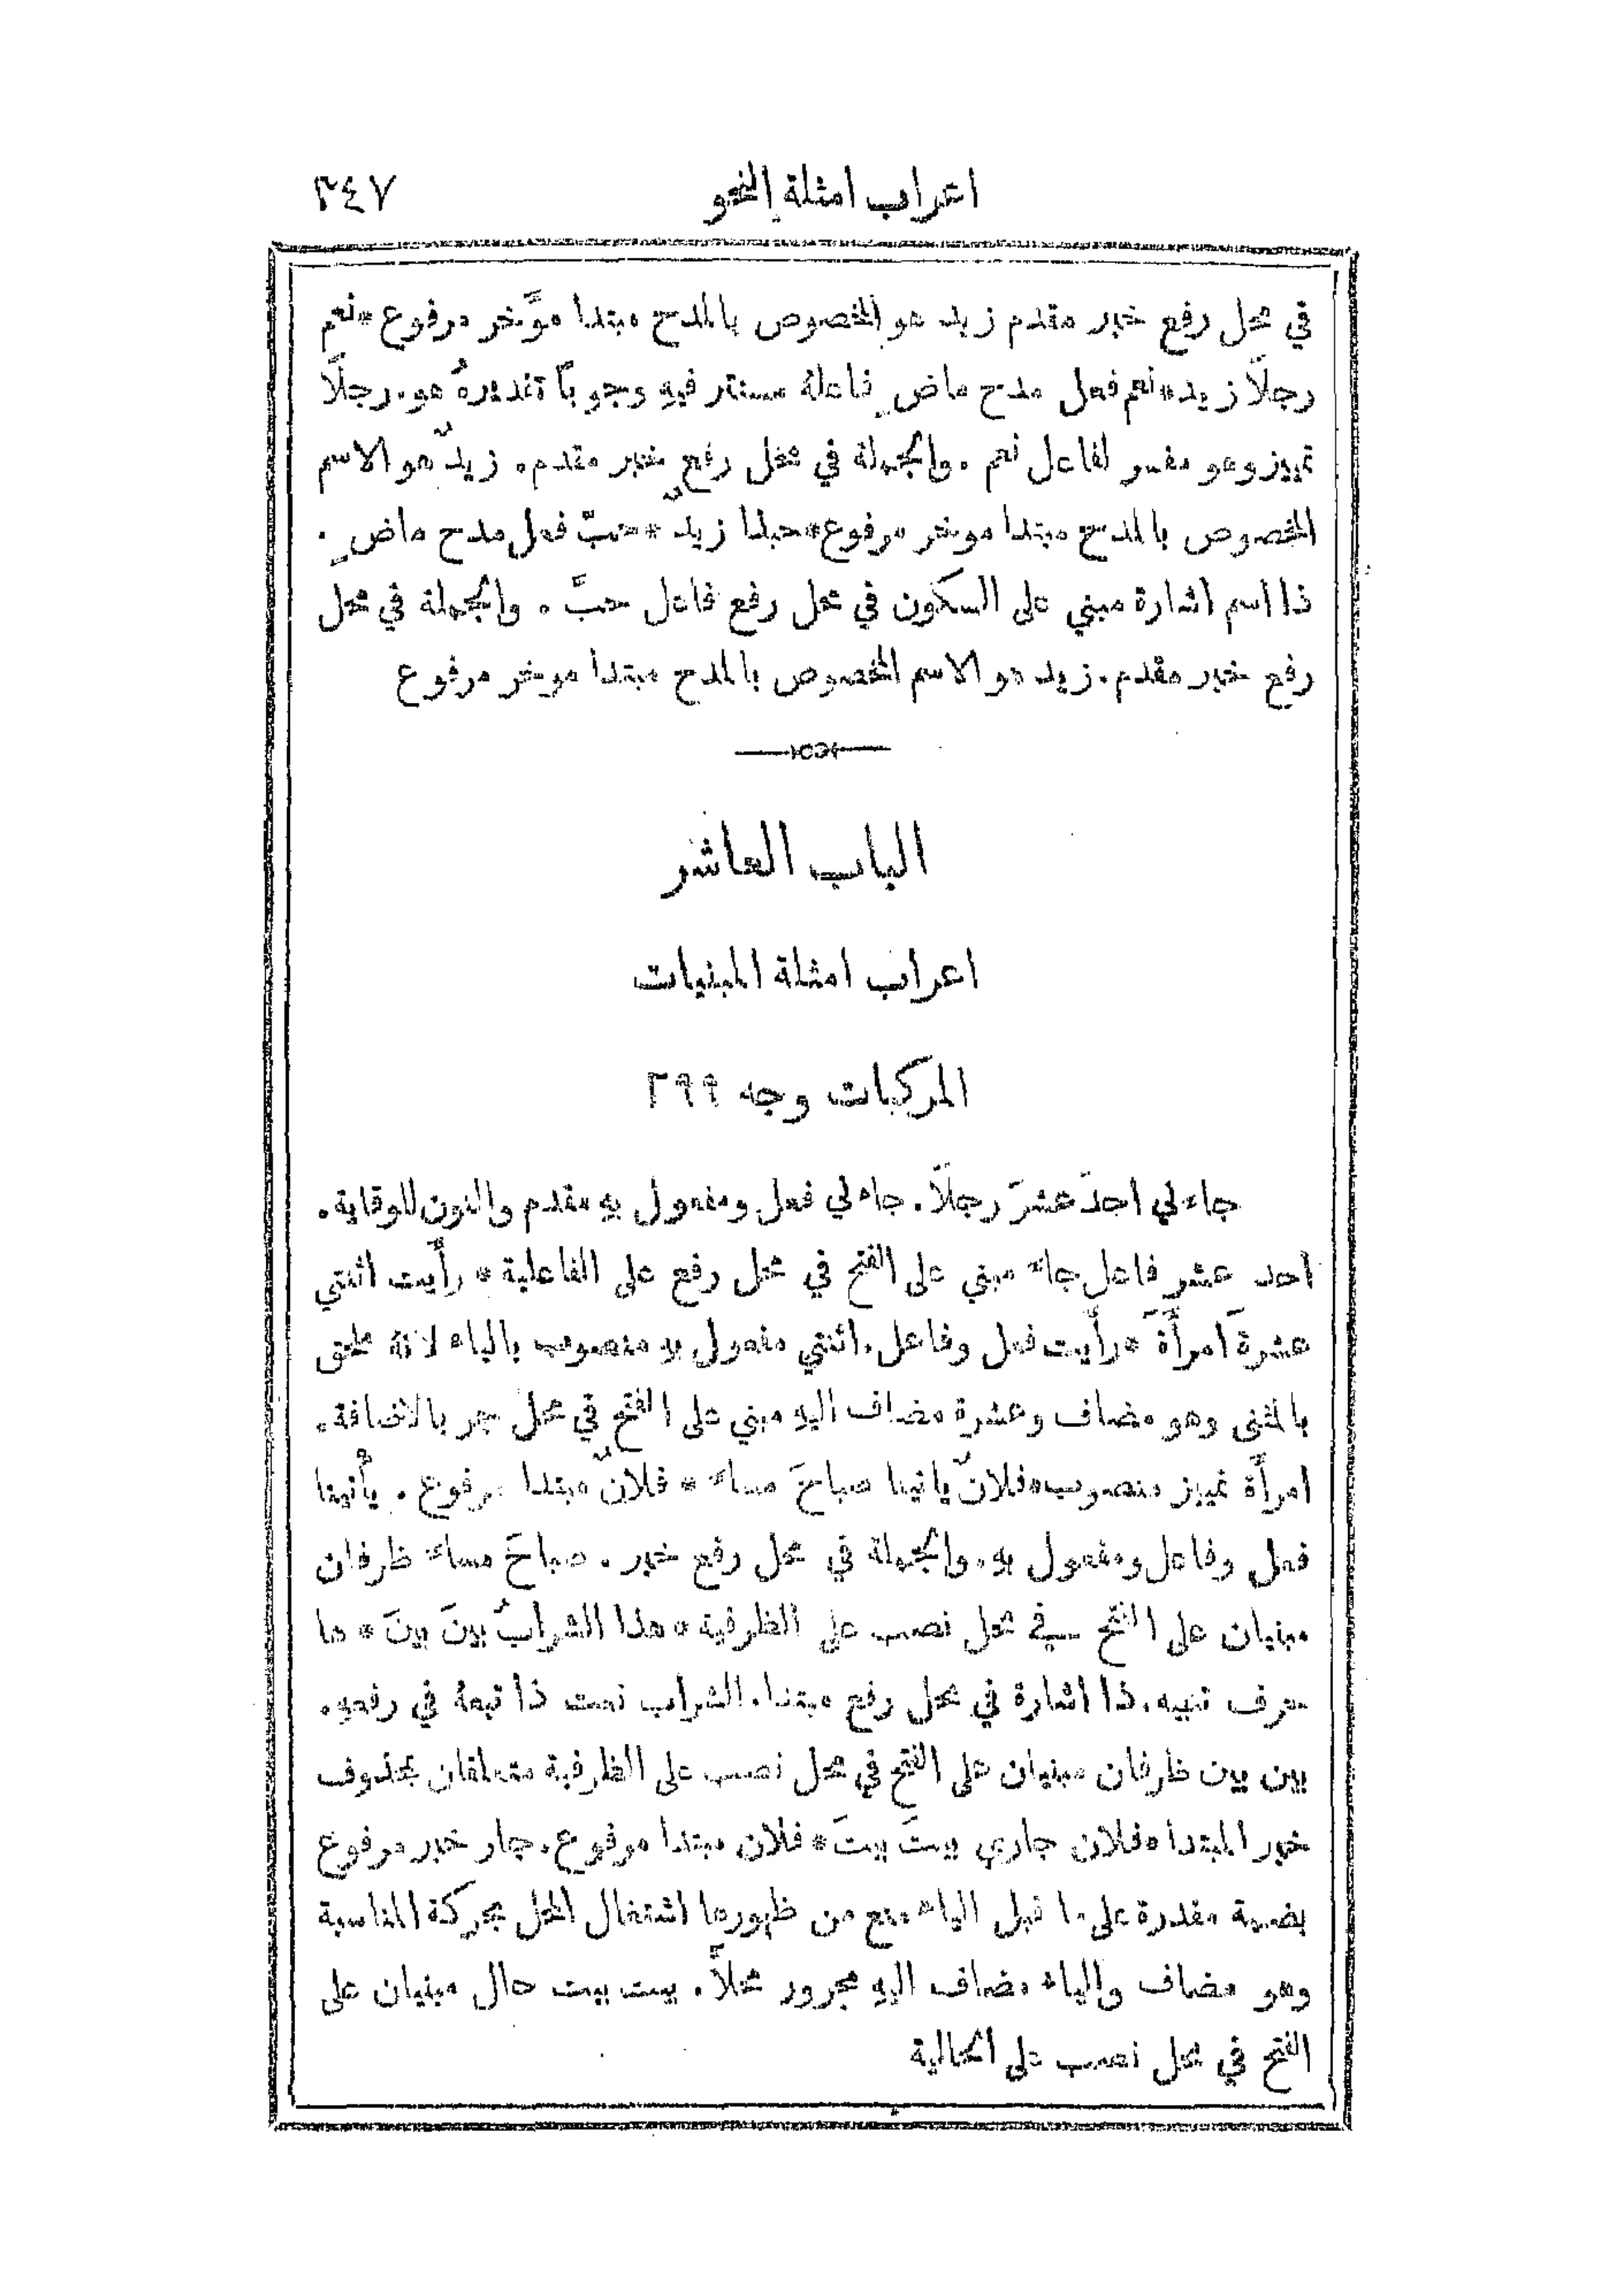 اعراب امثلة النحو ٣٤٧
في محل رفع خبر مقدم زيد هو المخصوص بالمدح مبتدا موَّخر مرفوع * نعم
رجلًا زيد * نعم فعل مدح ماضٍ فاعلهُ مستتر فيهِ وجوبًا تقديرهُ هو . رجلًا
تمييز وهو مفسر لفاعل نعم . والجملة في محل رفع خبر مقدم . زيدٌ هو الاسم
المخصوص بالمدح مبتدا موخر مرفوع * حبذا زيدٌ * حبَّ فعل مدح ماضٍ .
ذا اسم اشارة مبني على السكون في محل رفع فاعل حبَّ . والجملة في محل
رفع خبر مقدم . زيد هو الاسم المخصوص بالمدح مبتدا موخر مرفوع
الباب العاشر
اعراب امثلة المبنيات
المركبات وجه ٢٩٩
جاءني احدَ عشرَ رجلًا . جاءني فعل ومفعول بهِ مقدم والنون للوقاية .
احد عشر فاعل جاءَ مبني على الفتح في محل رفع على الفاعلية * رأَيت اثنتي
عشرةَ امرأَةً * رأَيت فعل وفاعل . اثنتي مفعول بهِ منصوب بالياء لانهُ ملحق
بالمثنى وهو مضاف وعشرة مضاف اليهِ مبني على الفتح في محل جر بالاضافة .
امرأَة تمييز منصوب * فلانٌ يأتينا صباحَ مساءَ * فلانٌ مبتدا مرفوع . يأْتينا
فعل وفاعل ومفعول بهِ . والجملة في محل رفع خبر . صباحَ مساءَ ظرفان
مبنيان على الفتح في محل نصب على الظرفية * هذا الشرابُ بينَ بينَ * ها
حرف تنبيه . ذا اشارة في محل رفع مبتدا . الشراب نعت ذا تبعهُ في رفعهِ .
بين بين ظرفان مبنيان على الفتح في محل نصب على الظرفية متعلقان بمحذوف
خبر المبتدا * فلان جاري بيتَ بيتَ * فلان مبتدا مرفوع . جار خبر مرفوع
بضمة مقدرة على ما قبل الياء منع من ظهورها اشتغال المحل بحركة المناسبة
وهو مضاف والياء مضاف اليهِ مجرور محلًّا . بيت بيت حال مبنيان على
الفتح في محل نصب على الحالية